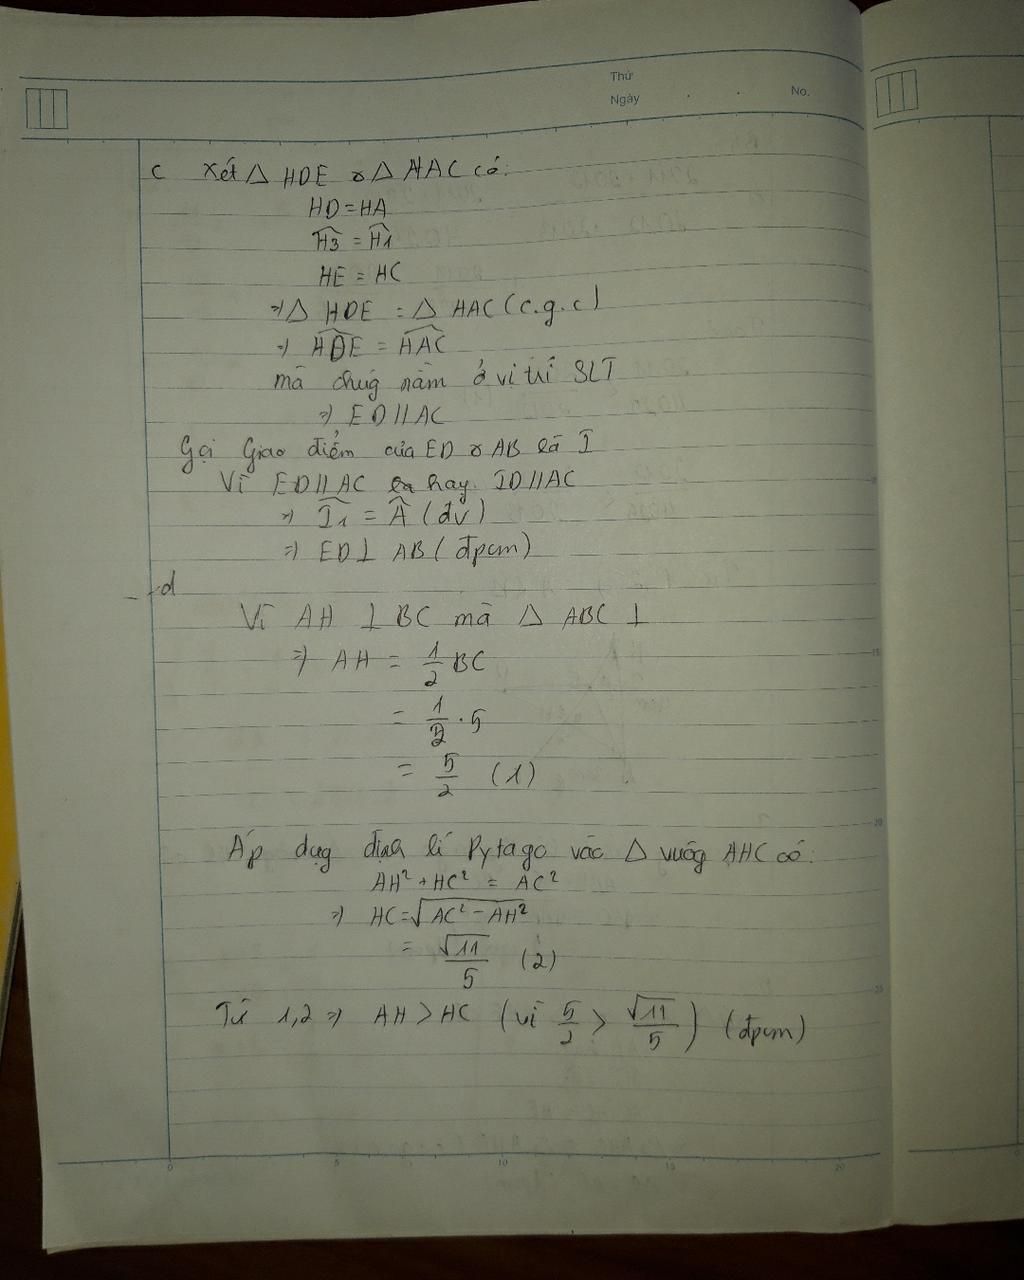 Thứ
Ngày . . No.
c Xét △ HDE & △ HAC có:
HD = HA
Ĥ3 = Ĥ1
HE = HC
⇒ △ HDE = △ HAC (c.g.c)
⇒ HDE = HAC
mà chúg nằm ở vị trí SLT
⇒ ED // AC
Gọi Giao điểm của ED & AB là I
Vì ED // AC hay ID // AC
⇒ Î1 = Â (đv)
⇒ ED ⊥ AB (đpcm)
d
Vì AH ⊥ BC mà △ ABC ⊥
⇒ AH = 1/2 BC
= 1/2 . 5
= 5/2 (1)
Áp dụg định lí Pytago vào △ vuôg AHC có:
AH² + HC² = AC²
⇒ HC = √(AC² - AH²)
= √11/5 (2)
Từ 1,2 ⇒ AH > HC (vì 5/2 > √11/5) (đpcm)
0 5 10 15 20